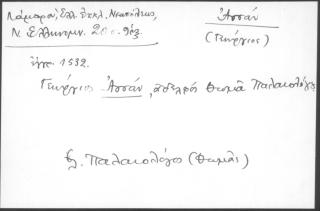 Λάμπρου, Ἑλλ. Ἐκκλ. Νεαπόλεως,
Ν. Ἑλληνομν. 20
Ἀσσάν
(Γεώργιος)
ἔγγρ. 1532.
Γεώργιος Ἀσσάν, ἀδελφός Θωμᾶ Παλαιολόγου
βλ. Παλαιολόγος (Θωμᾶς)